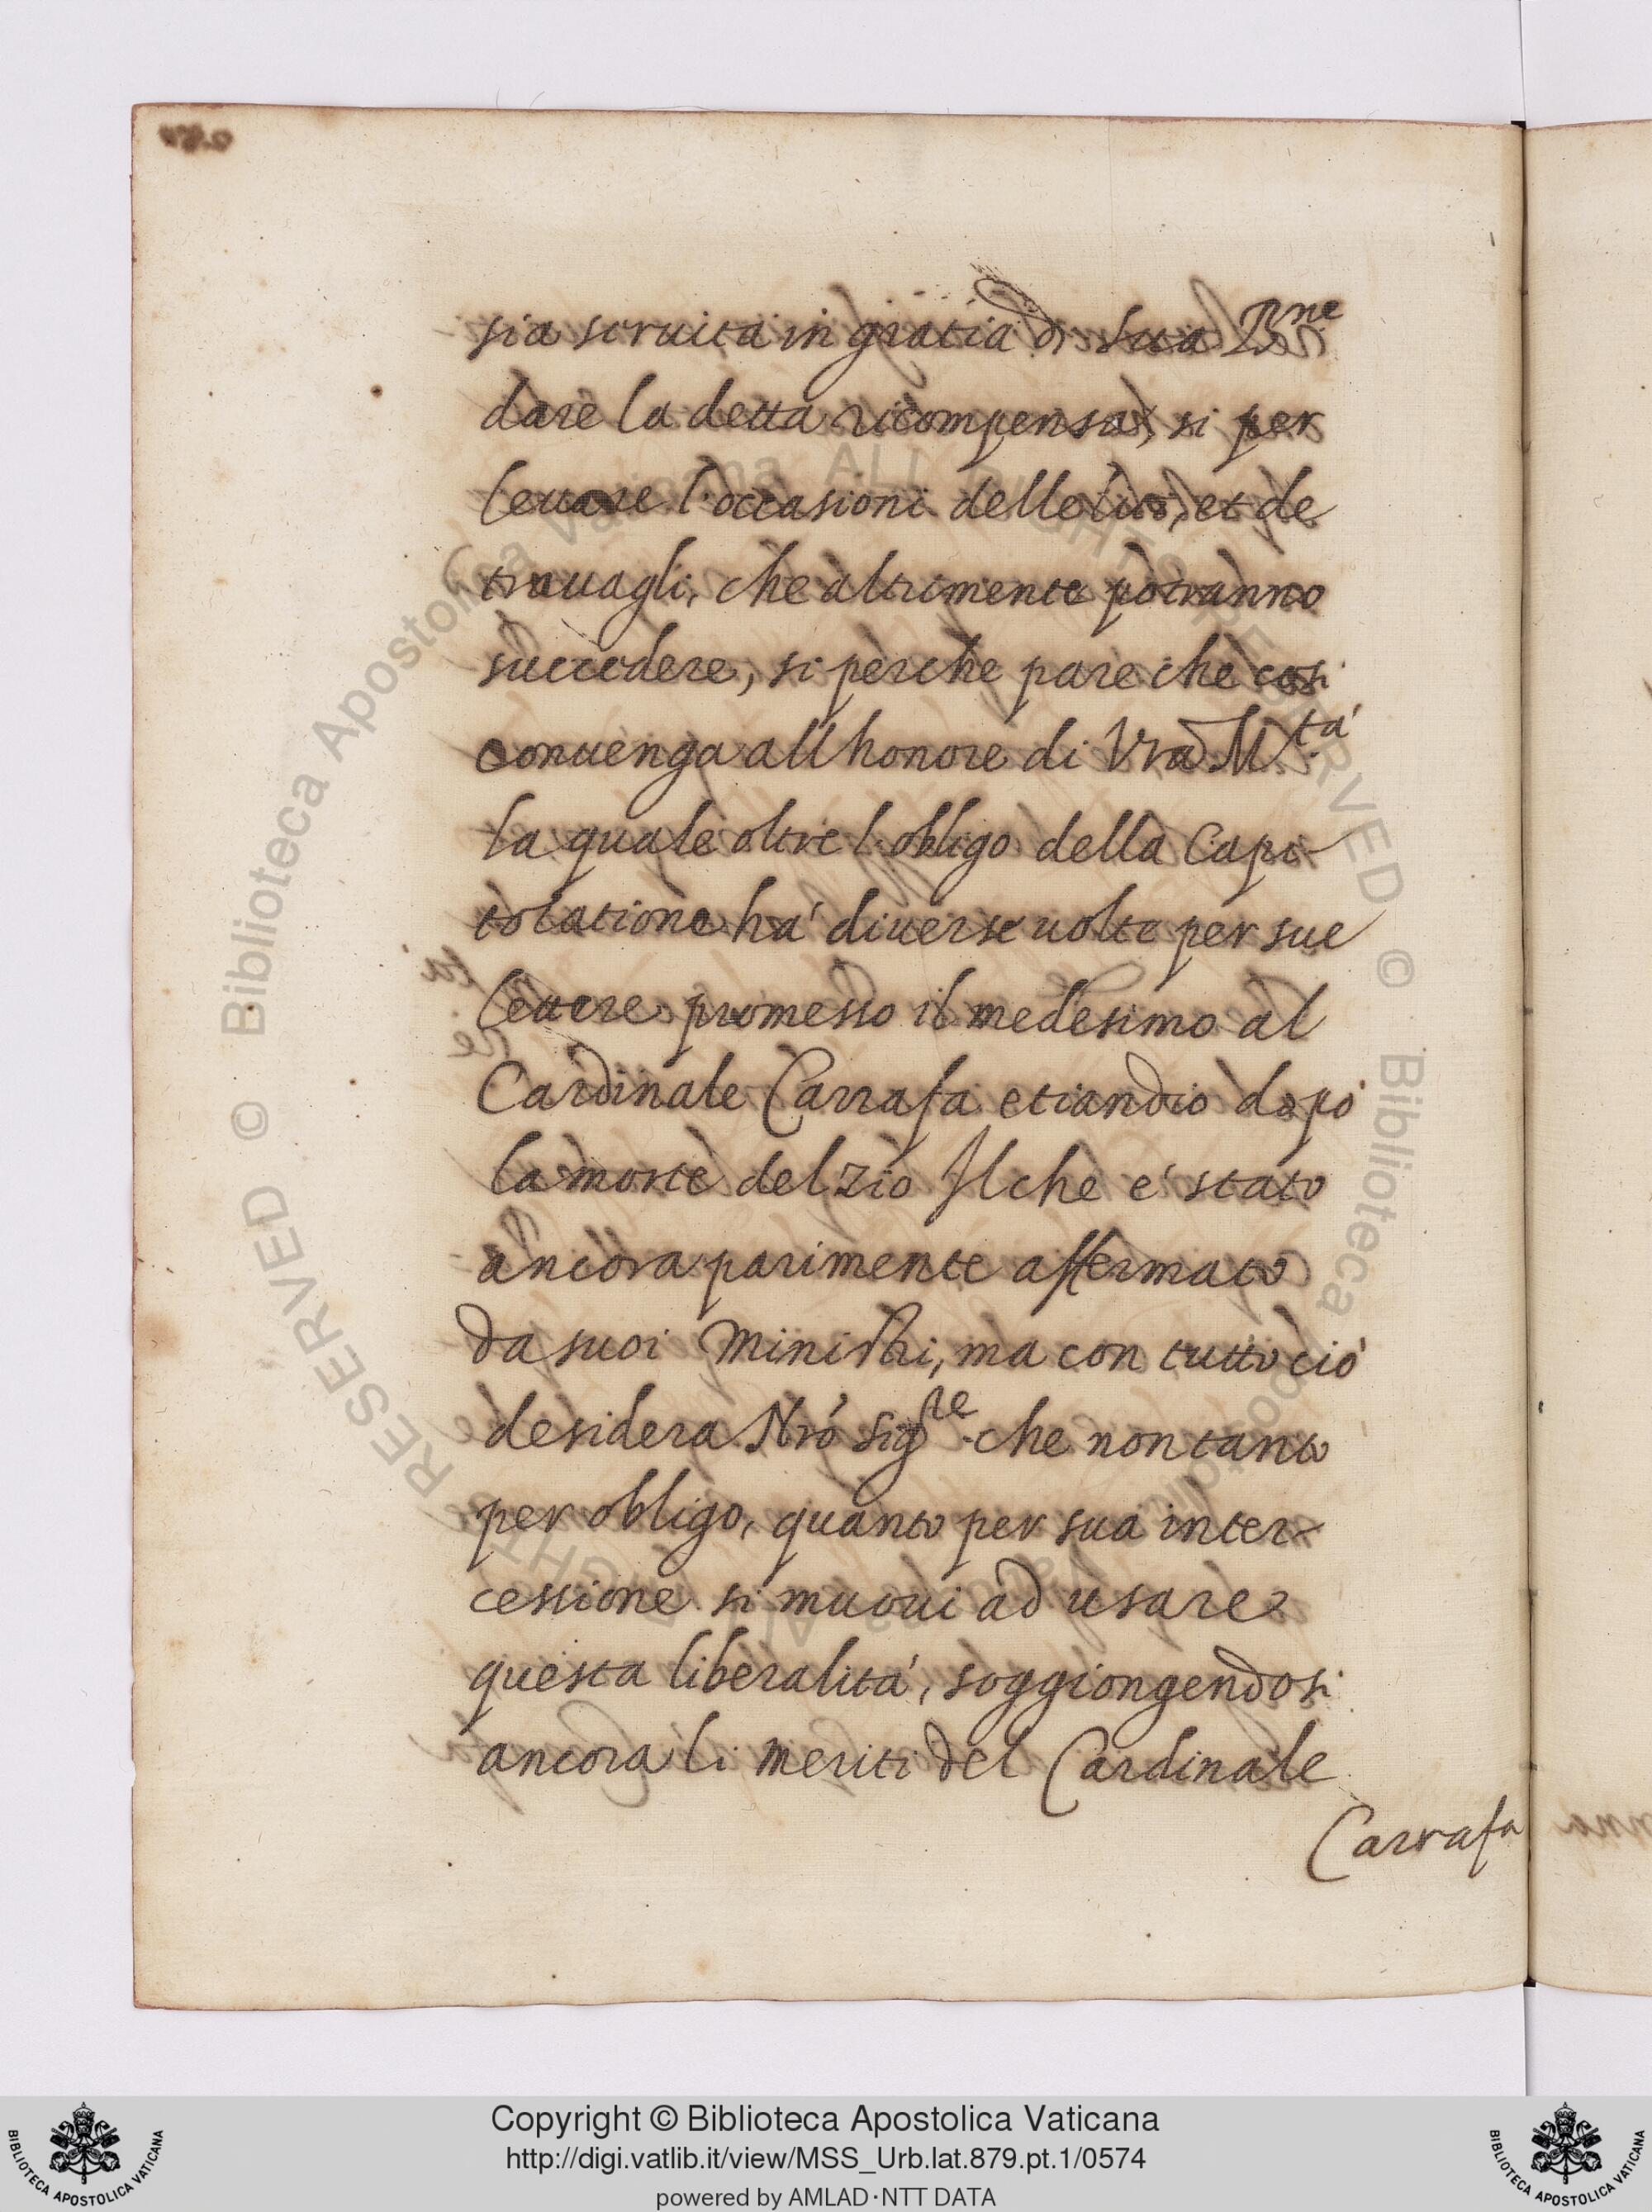 sia seruita in gratia di sua B.ne
dare la detta ricompensa, si per
leuare l'occasioni delle lite, et de
trauagli, che altrimente potranno
succedere, si perche pare che cosi
conuenga all'honore di Vra M.tá
la quale oltre l'obligo della Capi-
tolatione há diuerse uolte per sue
lettere promesso il medesimo al
Cardinale Carrafa etiandio dopó
la morte del zio Il che é stato
ancora parimente affermato
da suoi Ministri, ma con tutto ció
desidera Nró Sig.re che non tanto
per obligo, quanto per sua inter-
cessione si muoui ad usare
questa liberalitá, soggiongendosi
ancora li meriti del Cardinale
Carrafa
© Biblioteca Apostolica Vaticana ALL RIGHTS RESERVED © Biblioteca Apostolica Vaticana ALL RIGHTS RESERVED
Copyright © Biblioteca Apostolica Vaticana
http://digi.vatlib.it/view/MSS_Urb.lat.879.pt.1/0574
powered by AMLAD·NTT DATA
BIBLIOTECA APOSTOLICA VATICANA
BIBLIOTECA APOSTOLICA VATICANA